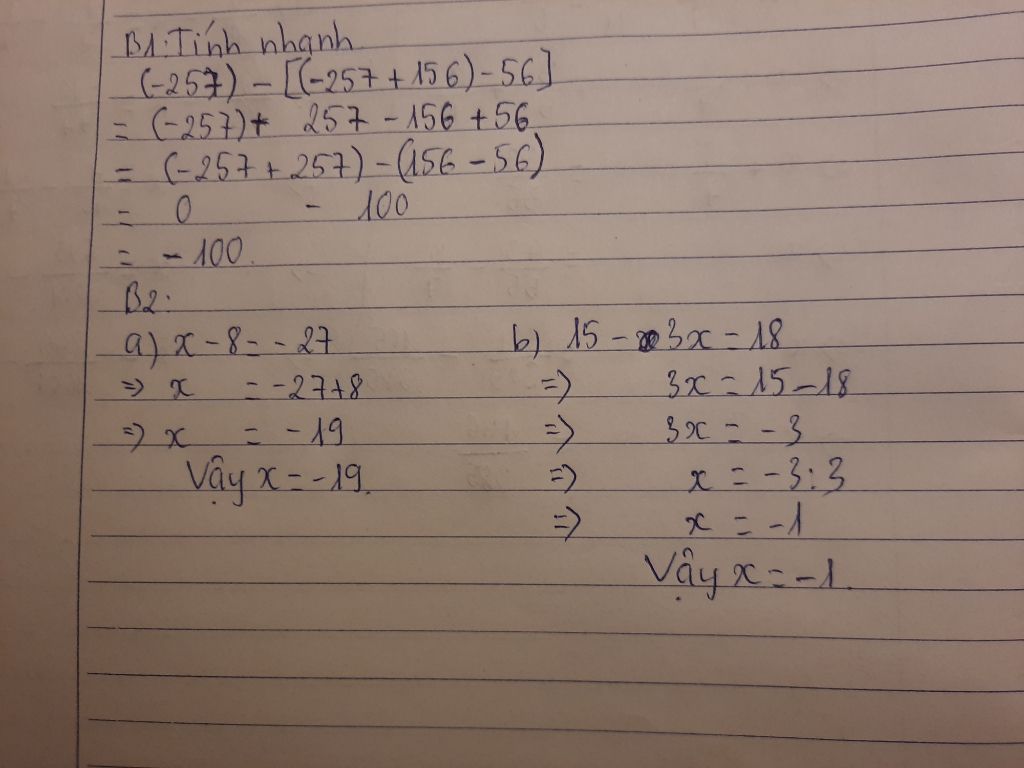 B1: Tính nhanh
(-257) - [(-257 + 156) - 56]
= (-257) + 257 - 156 + 56
= (-257 + 257) - (156 - 56)
= 0 - 100
= - 100.
B2:
a) x - 8 = - 27
=> x = - 27 + 8
=> x = - 19
Vậy x = - 19.
b) 15 - 3x = 18
=> 3x = 15 - 18
=> 3x = - 3
=> x = - 3 : 3
=> x = - 1
Vậy x = - 1.